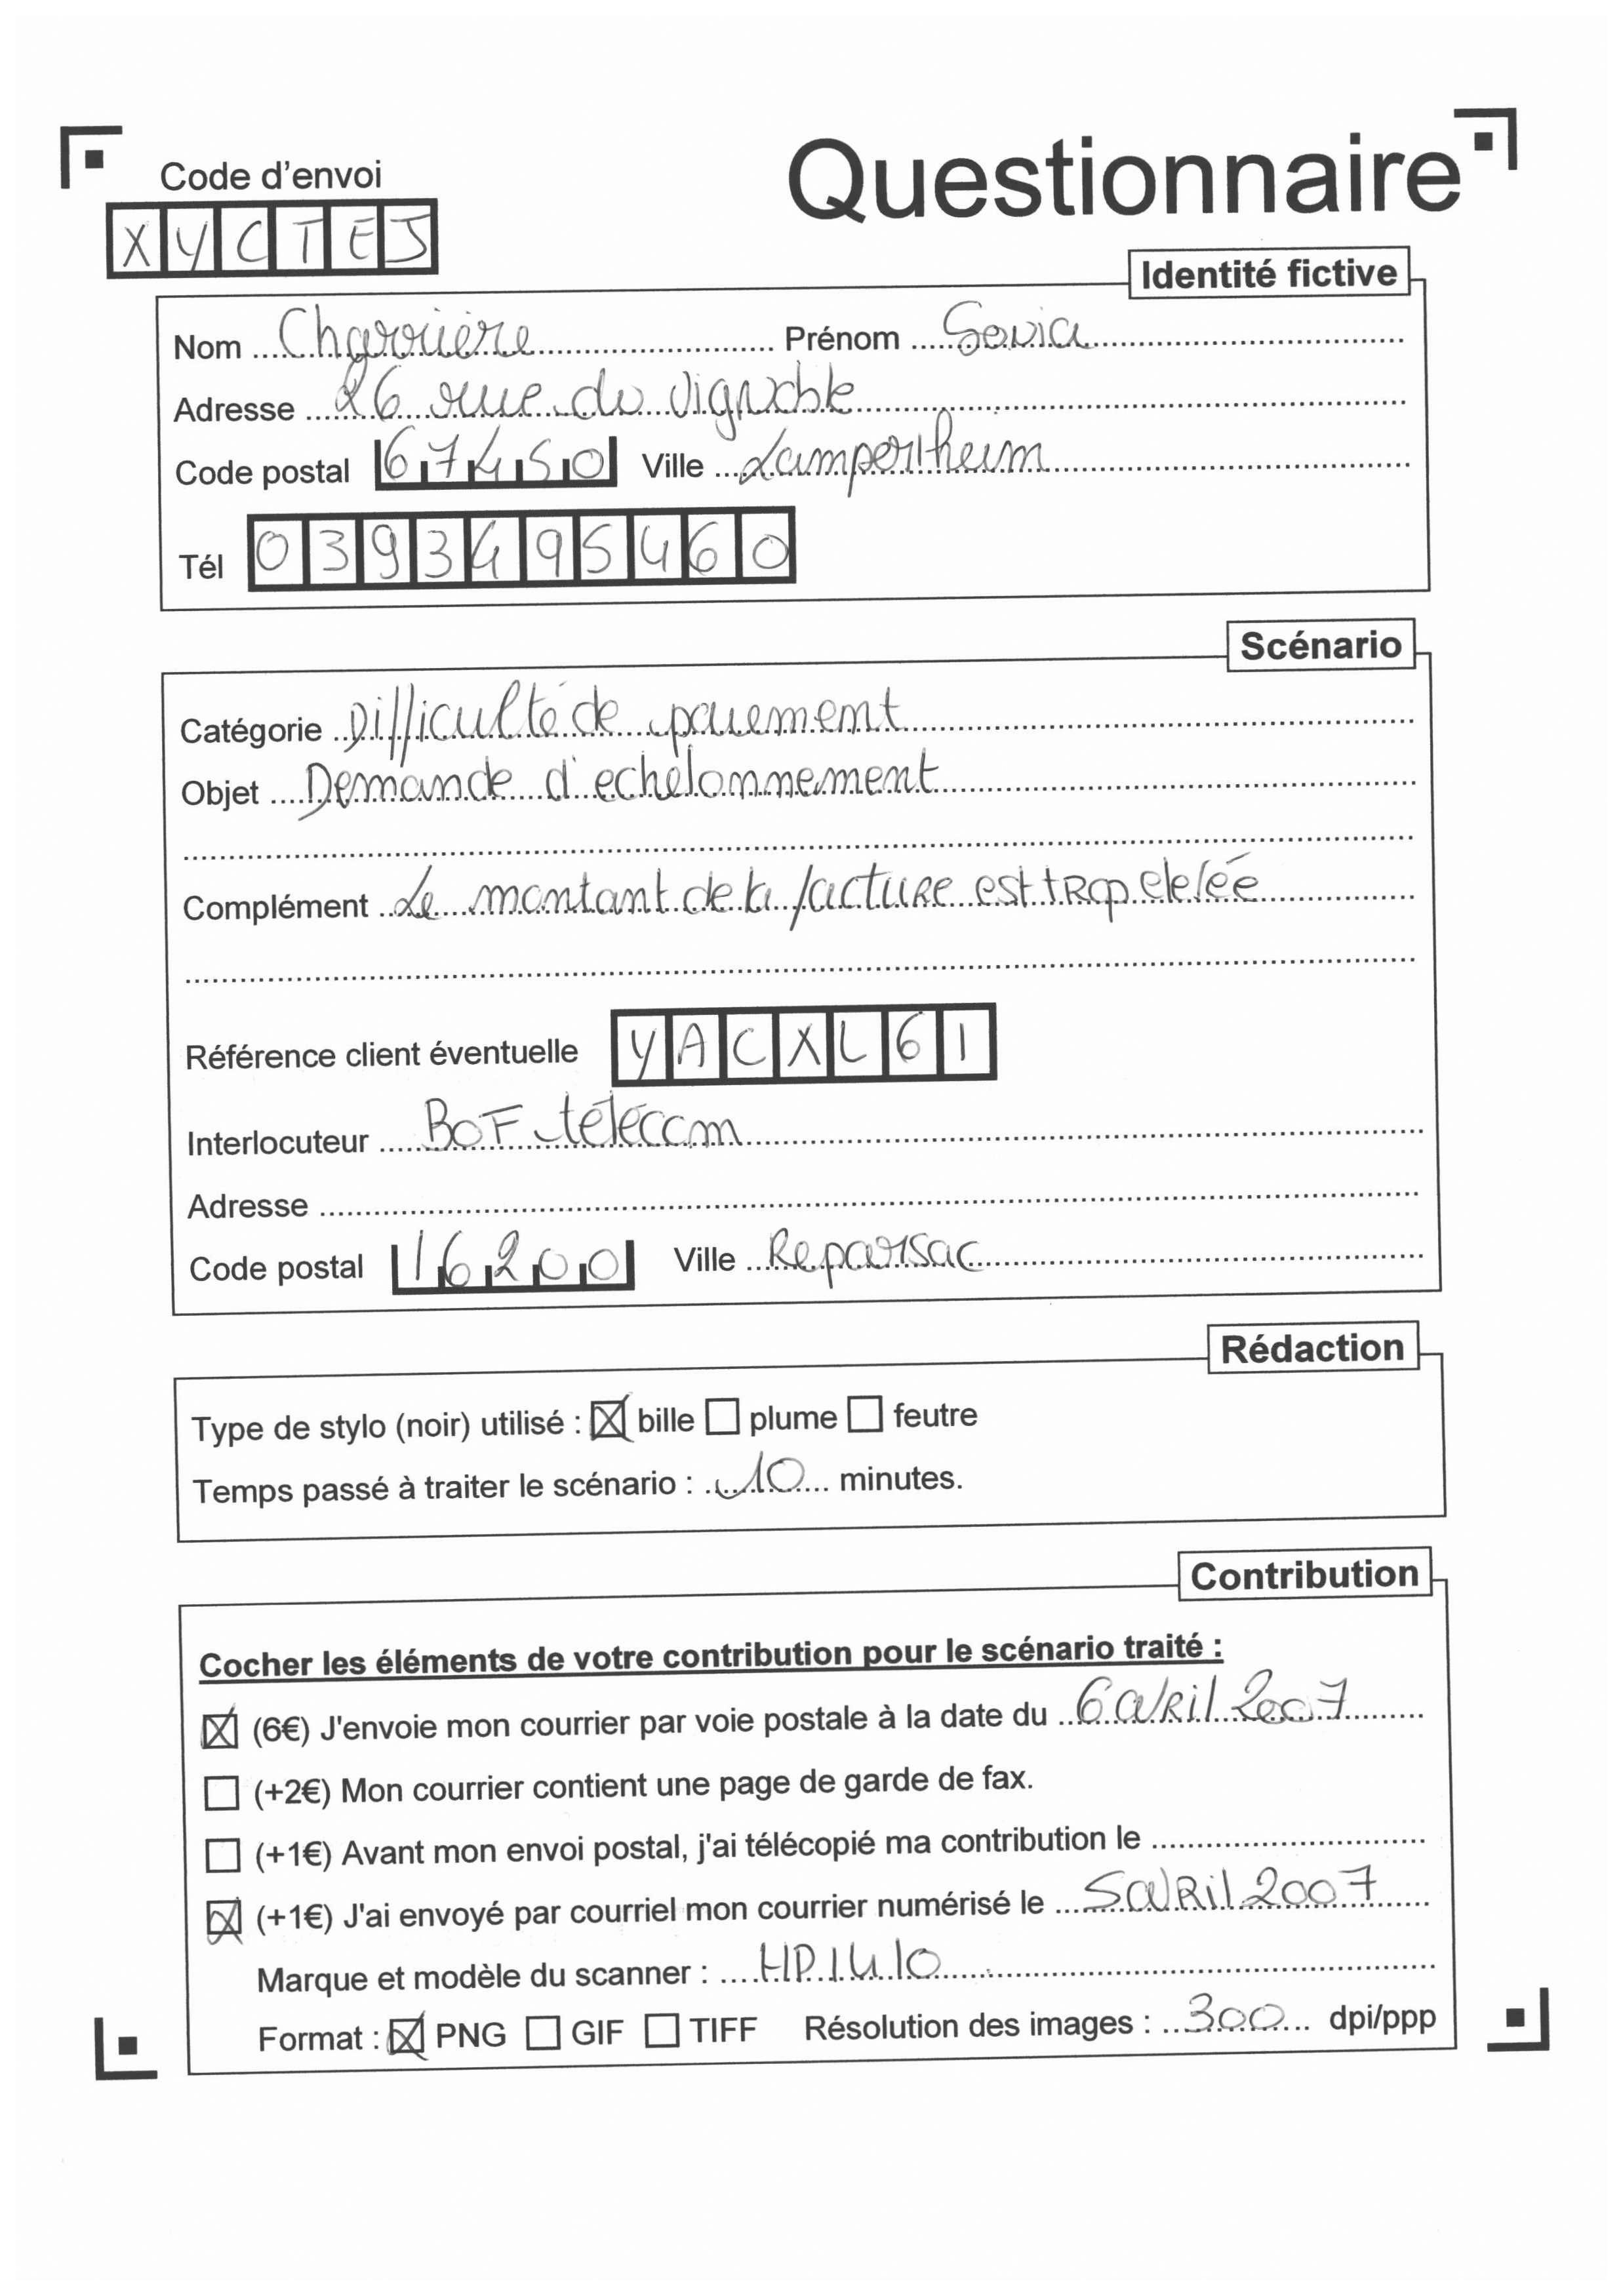 Code d'envoi
Questionnaire
XYCTEJ
Identité fictive
Nom Charrière Prénom Sonia
Adresse 26 rue du vignoble
Code postal 67450 Ville Lampertheim
Tél 0393495460
Scénario
Catégorie Difficulté de paiement
Objet Demande d'echélonnement
Complément Le montant de la facture est trop elevée
Référence client éventuelle YACXL61
Interlocuteur BOF télécom
Adresse
Code postal 16200 Ville Reparsac
Rédaction
Type de stylo (noir) utilisé : ☒ bille ☐ plume ☐ feutre
Temps passé à traiter le scénario : 10 minutes.
Contribution
Cocher les éléments de votre contribution pour le scénario traité :
☒ (6€) J'envoie mon courrier par voie postale à la date du 6 avril 2007
☐ (+2€) Mon courrier contient une page de garde de fax.
☐ (+1€) Avant mon envoi postal, j'ai télécopié ma contribution le
☒ (+1€) J'ai envoyé par courriel mon courrier numérisé le 5 avril 2007
Marque et modèle du scanner : HP 1410
Format : ☒ PNG ☐ GIF ☐ TIFF Résolution des images : 300 dpi/ppp